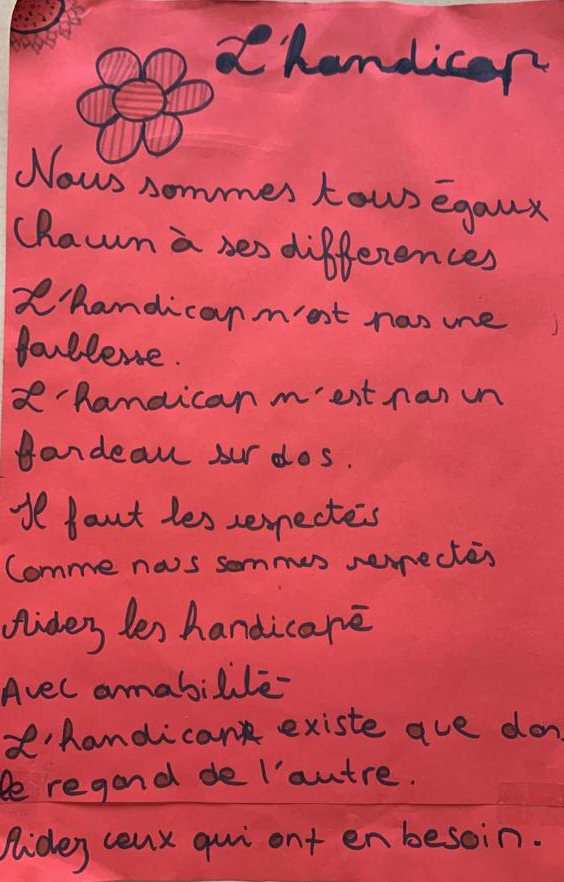 L'handicap
Nous sommes tous égaux
Chacun à ses differences
L'handicap n'est pas une
faiblesse.
L'handicap n'est pas un
fardeau sur dos.
Il faut les respectés
Comme nous sommes respectés
Aidez les handicapé
Avec amabilité
L'handicap existe que dans
le regard de l'autre.
Aidez ceux qui ont en besoin.